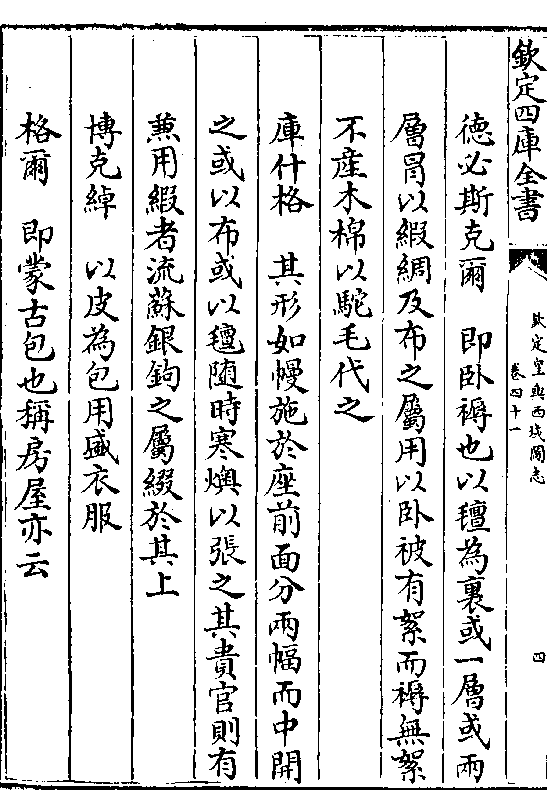 欽定四庫全書
欽定皇輿西域圖志
卷四十一
四
德必斯克爾　即卧褥也以氊為裏或一層或兩
層冐以緞綢及布之屬用以卧被有絮而褥無絮
不産木棉以駝毛代之
庫什格　其形如幔施於座前面分兩幅而中開
之或以布或以氊随時寒燠以張之其貴官則有
兼用緞者流蘇銀鉤之屬綴於其上
博克綽　以皮為包用盛衣服
格爾　即蒙古包也稱房屋亦云